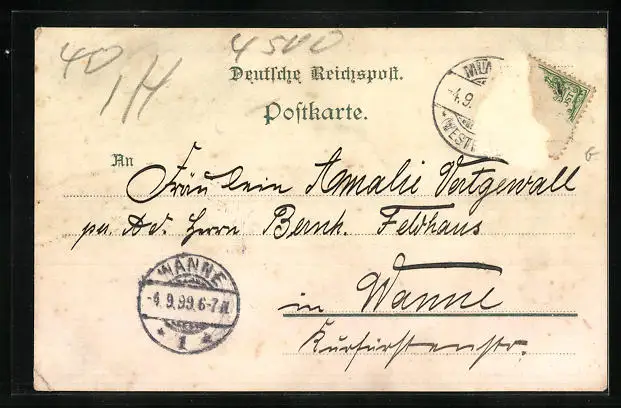 4500
40
Deutsche Reichspost.
Postkarte.
MÜN
-4.9.
(WESTF
5
An
Fräulein Amalie Vertgewall
per Ad. Herrn Bernh. Feldhaus
in Wanne
Kurfürstenstr.
WANNE
-4.9.99.6-7N.
* 1 *